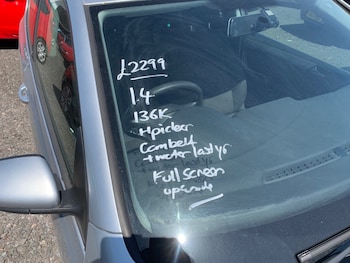 £2299
1.4
136K
Hpiclear
Cambelt
+ water last yr
Full screen
upgrade